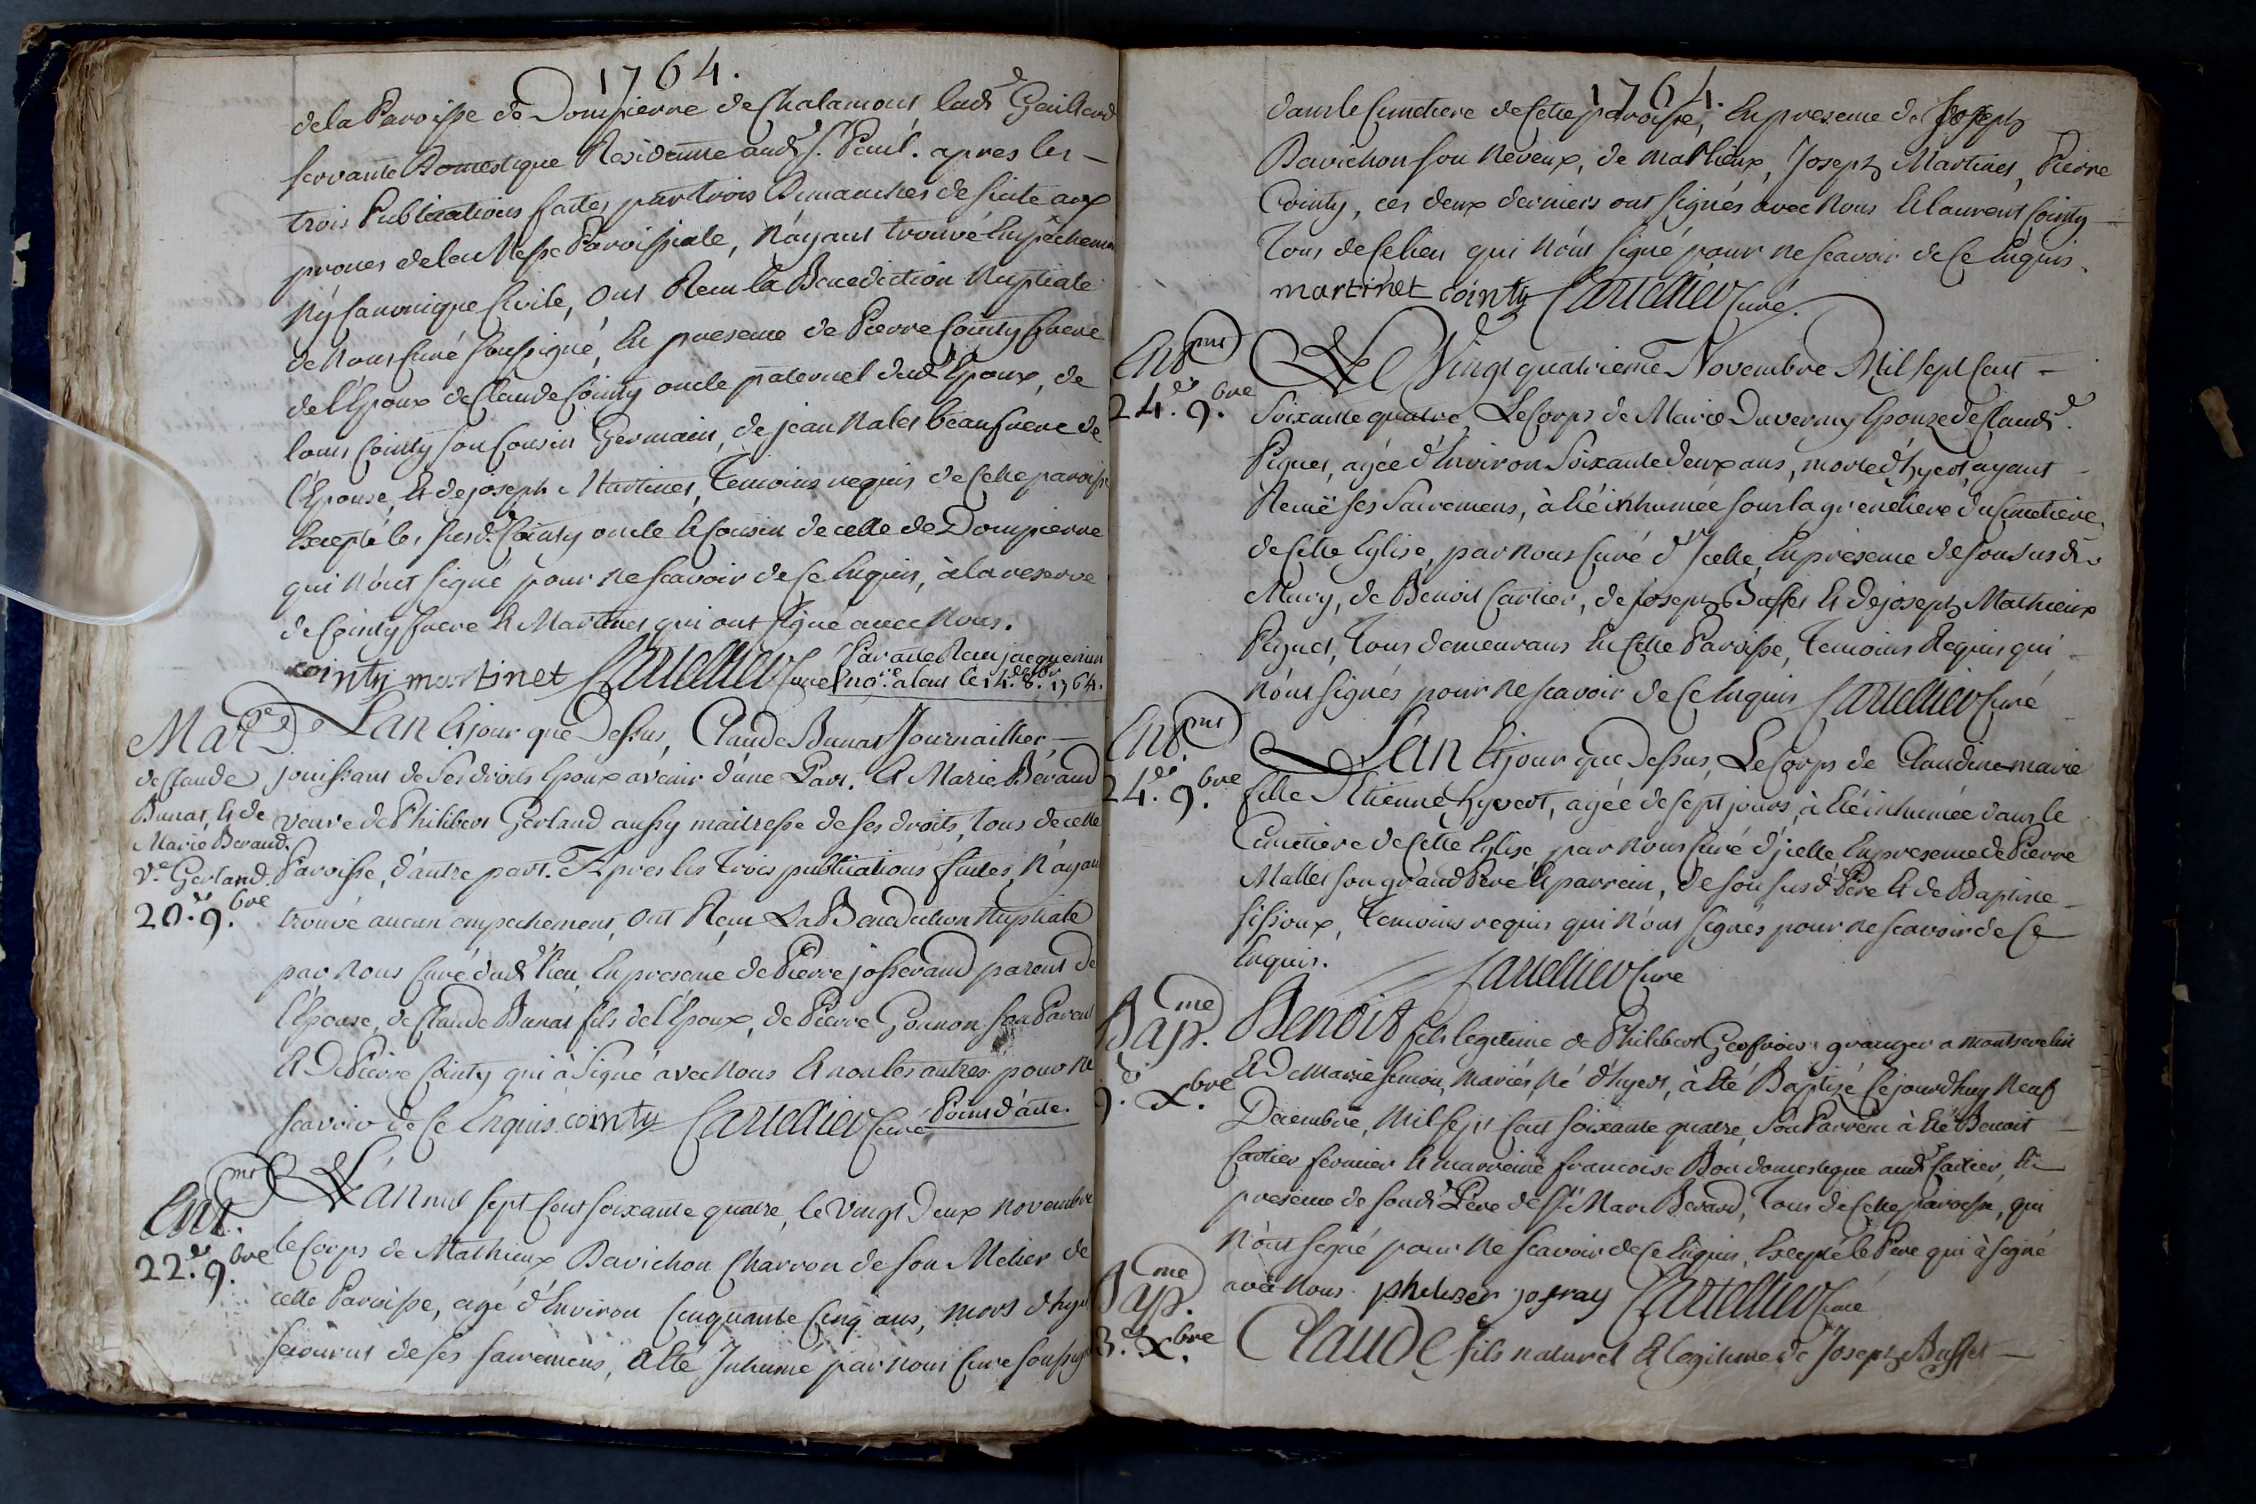 1764.
de la Paroisse de Dompierre de Chalamont lad.e Gaillard
servante Domestique Residente aud. S.t Paul. apres les
trois Publications faites par trois Dimanches de suite aux
prones de la Messe Paroissiale, N'ayant trouvé Empêchement
Ny Canonique Civile, ont Recu la Benediction Nuptiale
de Nous Curé soussigné, En presence de Pierre Cointy frere
de l'Epoux de Claude Cointy oncle paternel dud. Epoux, de
louis Cointy son Cousin Germain, de jean Nalet beaufrere de
l'Epouse, Et de joseph Martinet, Temoins requis de Cette paroisse
Excepté les susd. Cointy oncle Et Cousin de celle de Dompierre
qui N'ont signé pour ne scavoir de Ce Enquis, à la reserve
de Cointy frere Et Martinet qui ont signé avec Nous.
cointy martinet Cartellier Curé Par acte Recu jacquemin
No.re a le 14.e 8.bre 1764.
Mar.ge D.
de Claude
Bunat, Et de
Marie Beraud
V.e Gerland.
20.e 9.bre
L'an Et jour que Dessus, Claude Bunat Journaillier,
jouissant de Ses droits Epoux avenir d'une Part. Et Marie Béraud
veuve de Philibert Gerland aussy maitresse de ses droits, tous de cette
Paroisse, d'autre part. Apres les Trois publications faites, N'ayant
trouvé aucun empechement, ont Reçu La Benediction Nuptiale
par Nous Curé dud. lieu En presence de Pierre josserand parent de
l'Epouse, de Claude Bunat fils de l'Epoux, de Pierre Gonnon son Parent
Et De Pierre Cointy qui à Signé avec Nous Et non les autres pour ne
scavoir de Ce Enquis. cointy Cartellier Curé Point d'acte.
Ent.mt
22.e 9.bre
L'an mil sept Cent soixante quatre, le vingt Deux Novembre
le Corps de Mathieux Davichon Charron de son Metier de
cette Paroisse, agé d'Environ Cinquante Cinq ans, mort d'hyer
secourut de ses sacremens, a Eté Inhumé par nous Curé soussigné
1764.
dans le Cimetiere de Cette paroisse, En presence de Joseph
Davichon son Neveux, de Mathieux, Joseph Martinet, Pierre
Cointy, ces deux derniers ont signés avec Nous Et laurent Cointy
Tous de Ce lieu qui N'ont signé pour ne scavoir de Ce Enquis.
martinet cointy Cartellier Curé.
Ent.mt
24.e 9.bre
Le Vingt quatrieme Novembre Mil sept Cent
Soixante quatre, Le Corps de Marie Duvernay Epouze de Claude
Piquet, agée d'Environ Soixante deux ans, morte d'hyer, ayant
Recuë ses Sacremens, à Eté inhumée sous la du Cimetiere
de Cette Eglise, par Nous Curé d'Icelle, En presence de son susd.
Mary, de Benoit Cartier, de Joseph Buffet Et de joseph Mathieux
Piquet, Tous demeurans En Cette Paroisse, Temoins Requis qui
N'ont signés pour ne scavoir de Ce Enquis Cartellier Curé
Ent.mt
24.e 9.bre
L'an Et jour que Dessus, Le Corps de Claudine marie
fille Etienne hyvert, agée de sept jours, à Eté inhumée dans le
Cimetiere de Cette Eglise, par Nous Curé d'icelle En presence de Pierre
Mallet son grand Pere Et parrein, de son susd. Pere Et de Baptiste
sissoux, Temoins requis qui N'ont signés pour ne scavoir de Ce
Enquis. Cartellier Curé
Bap.me
9.e X.bre
Benoit fils legitime de Philibert Geofroir granger a montsevelin
Et De Marie semon, mariés, Né d'hyert, à Eté Baptisé Cejourdhuy Neuf
Decembre, Mil Sept Cent soixante quatre, Son Parrein à Eté Benoit
Cartier fermier Et marreine francoise Bon domestique aud. Cartier, En
presence de sond. Pere de S.r Marc Berard, Tous de Cette paroisse, qui
N'ont signé pour Ne scavoir de Ce Enquis, Excepté le Pere qui à signé
avec Nous. philiber jofray Cartellier Curé
Bap.me
3. X.bre
Claude fils naturel Et legitime de Joseph Buffet